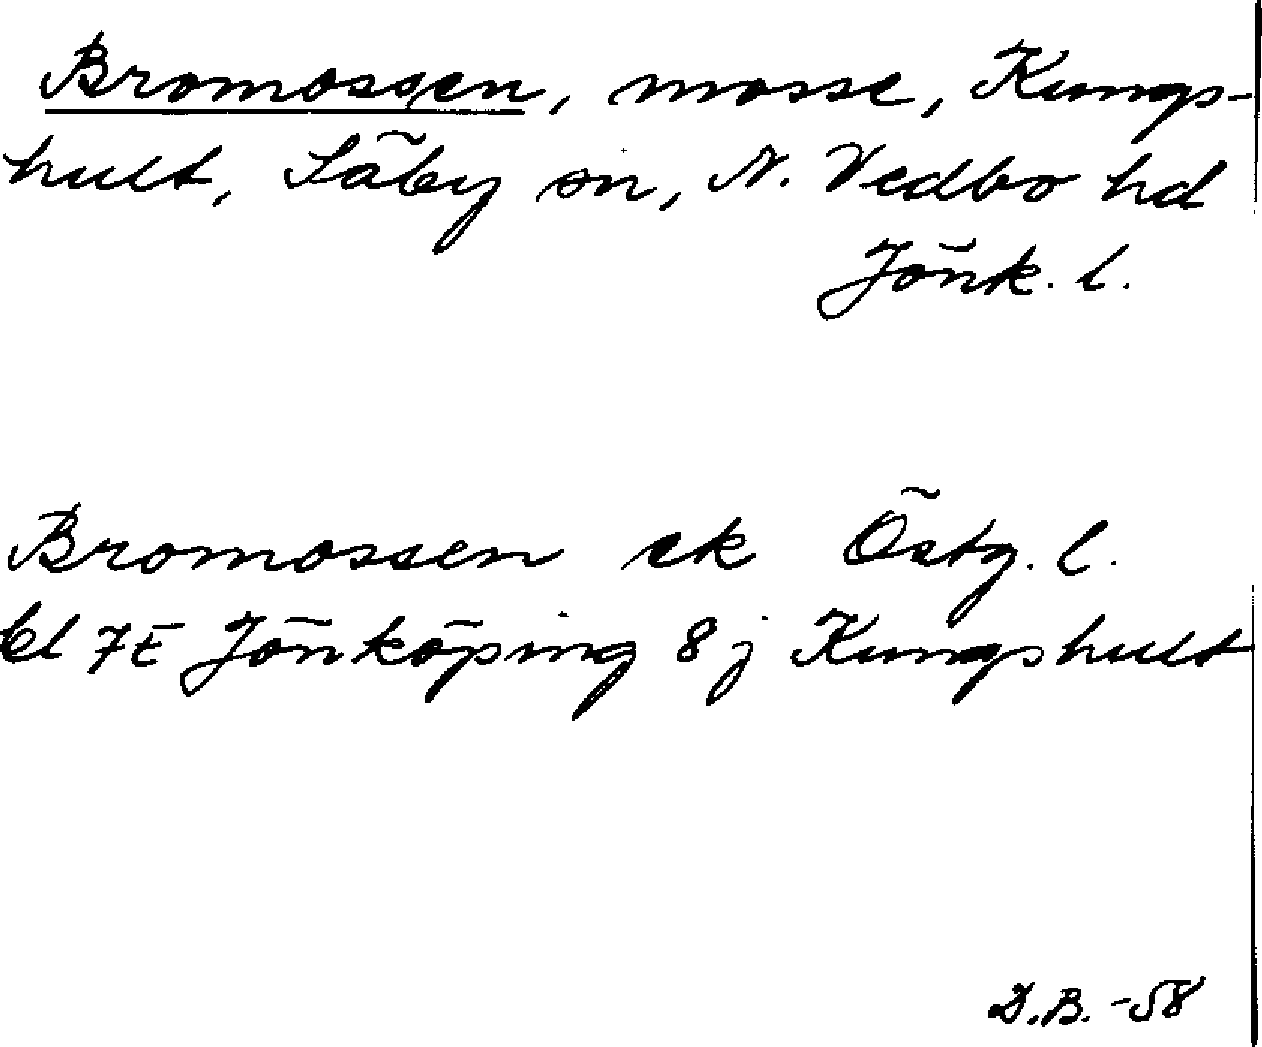 Bromossen, mosse, Kungs-
hult, Säby sn, N. Vedbo hd
Jönk. l.
Bromossen ek Östg. l.
bl 7E Jönköping 8j Kungshult
D.B. -58